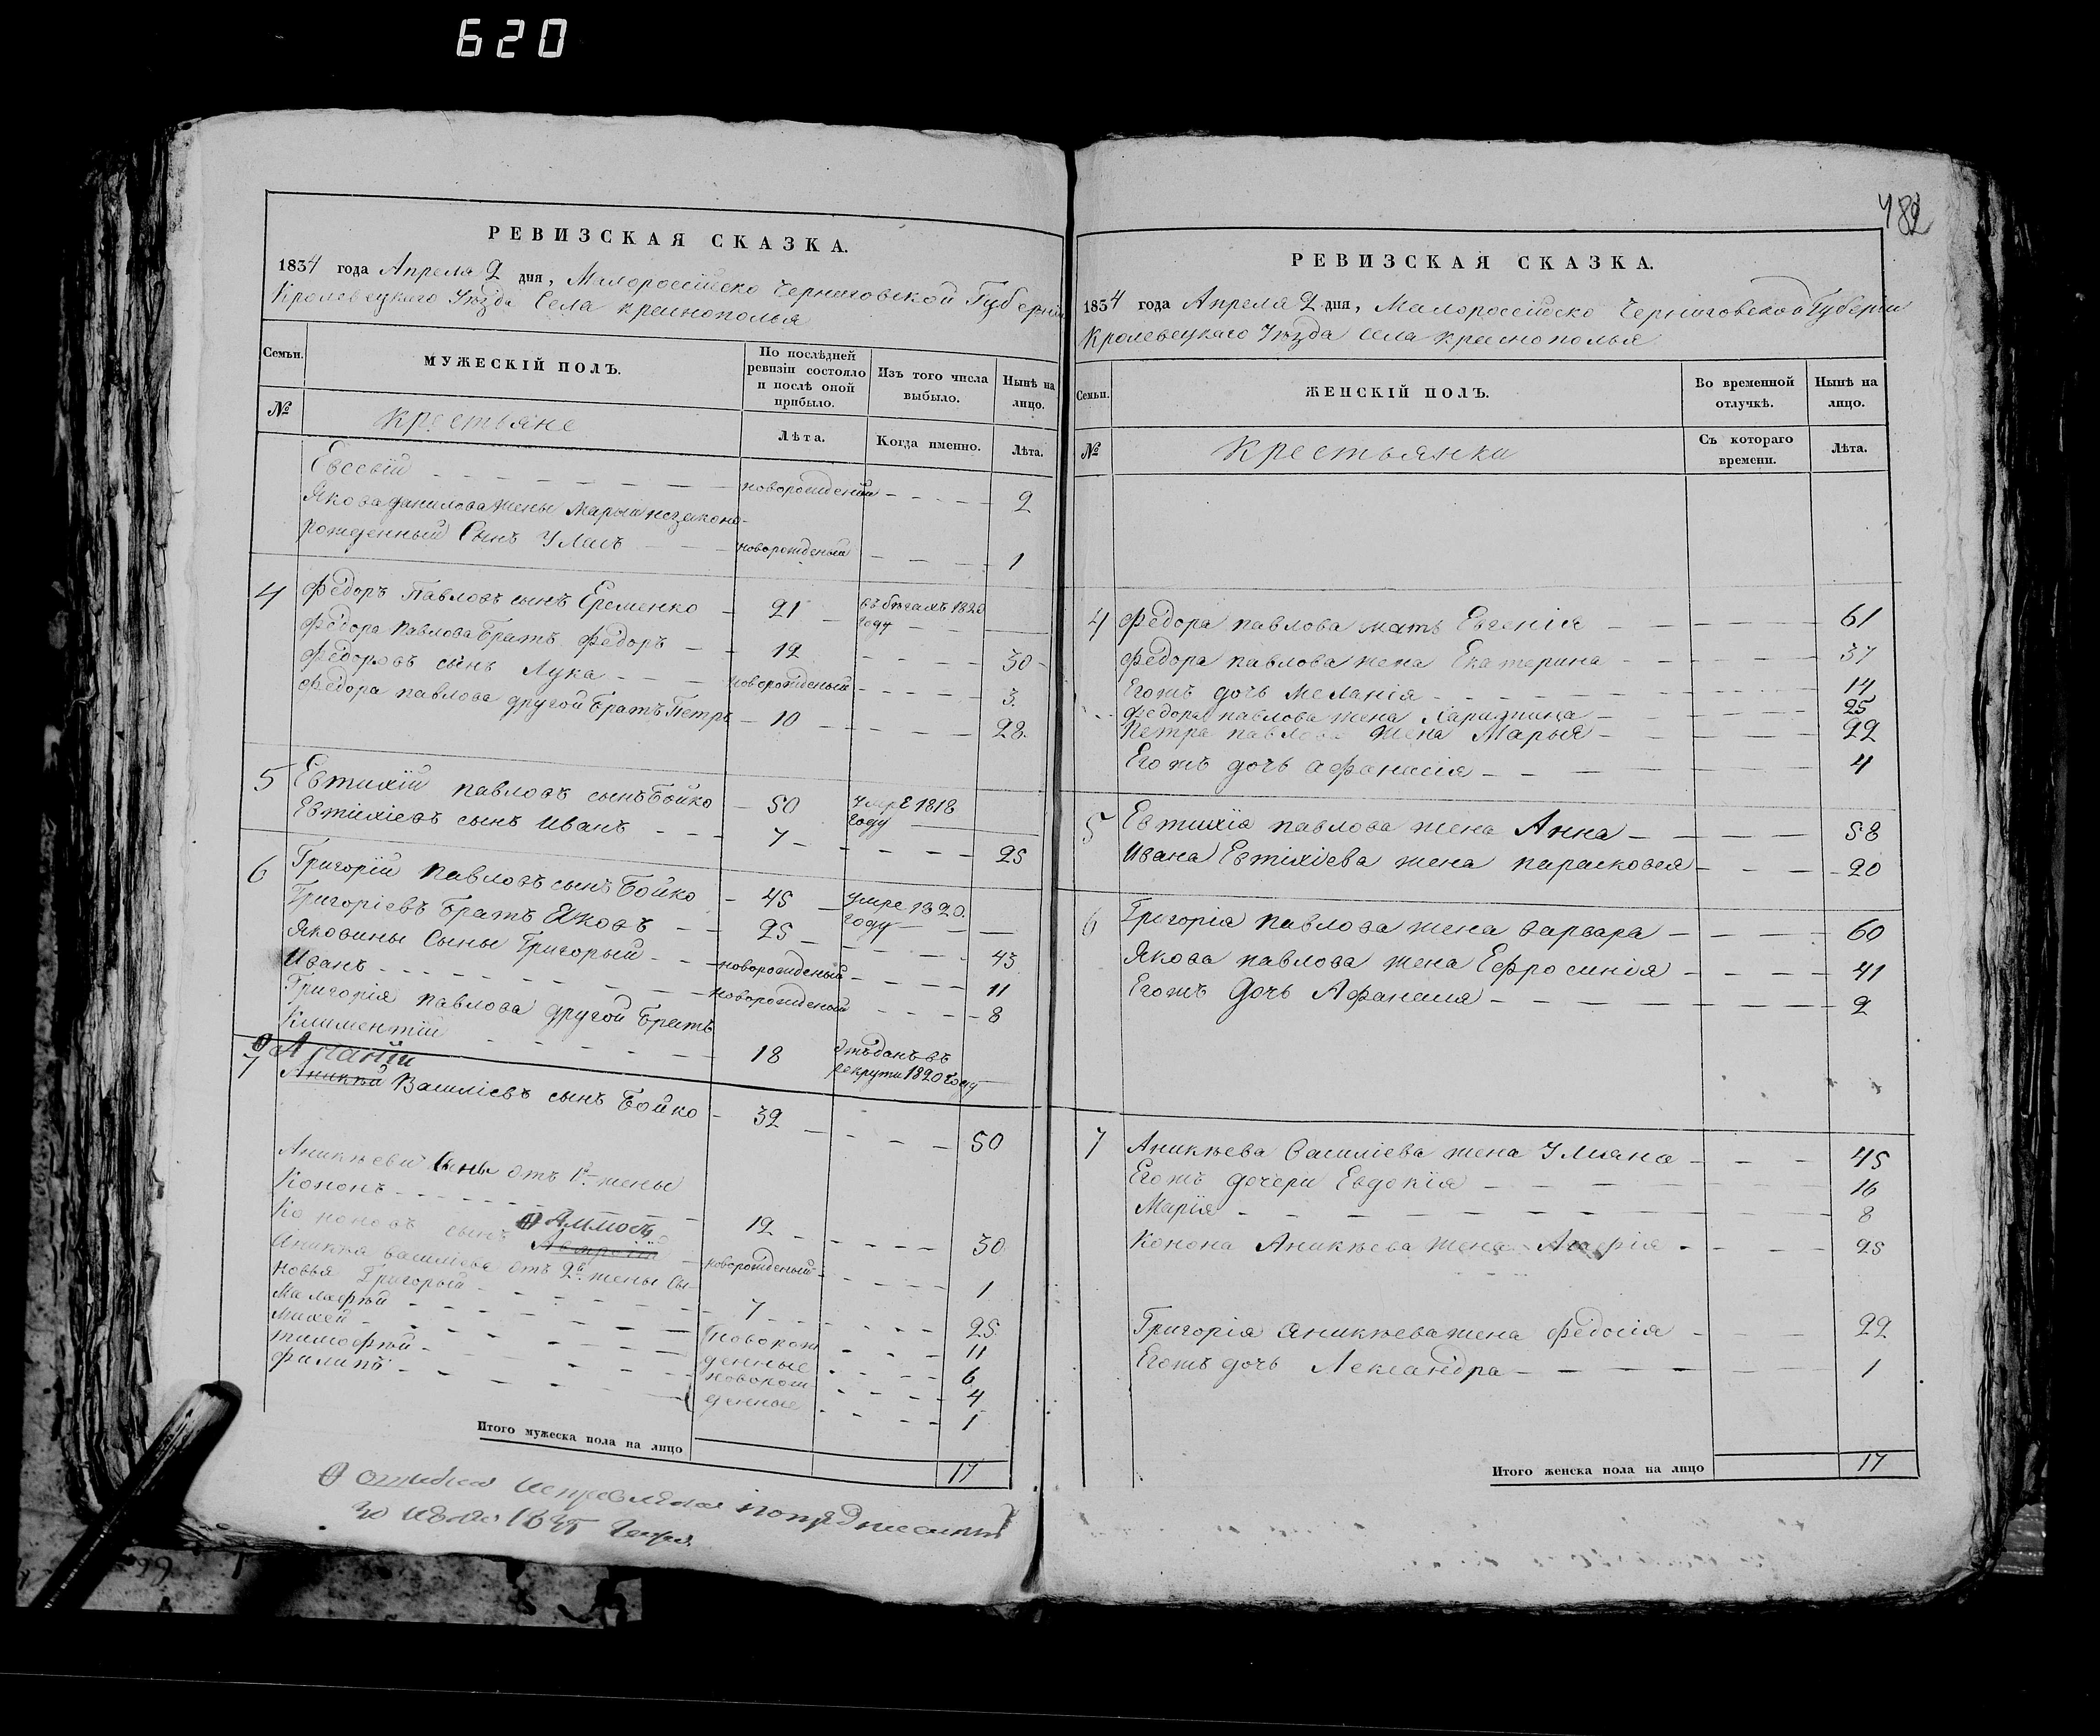 620
482
РЕВИЗСКАЯ СКАЗКА.
1834 года Апреля 2 дня, Малороссійско Черниговской Губерніи
Кролевецкаго Уѣзда Села Краснополья
Семьи. МУЖЕСКІЙ ПОЛЪ. По послѣдней ревизіи состояло и послѣ оной прибыло. Изъ того числа выбыло. Нынѣ на лицо.
№ Крестьяне Лѣта. Когда именно. Лѣта.
Евсевій новорожденый 2
Якова Данилова жены Марыи незаконо-
рожденный Сынъ Уласъ новорожденый 1
4 Федоръ Павловъ сынъ Еременко 21 въ бѣгахъ 1820 году
Федора Павлова Братъ Федоръ 12 30
Федоровъ сынъ Лука новорожденый 3
Федора павлова другой Братъ Петръ 10 28
5 Евтихій павловъ сынъ Бойко 50 умре 1818 году
Евтихіевъ сынъ Иванъ 7 25
6 Григорій павловъ сынъ Бойко 45 умре 1820 году
Григоріевъ Братъ Яковъ 25 43
Яковины Сыны Григорый новорожденый 11
Иванъ новорожденый 8
Григорія павлова другой Братъ
Климентій 18 отъданъ въ рекруты 1820 году
Ананій
7 Аникѣй Василіевъ сынъ Бойко 32 50
Аникѣевы Сыны отъ 1й жены
Кононъ 12 30
Кононовъ сынъ Аммосъ новорожденый 1
Аникѣя василіева отъ 2й жены Сы-
новья Григорый 7 25
Малафѣй новорож 11
Михей денные 6
тимофѣй новорож 4
филипъ денные 1
Итого мужеска пола на лицо 17
1835
РЕВИЗСКАЯ СКАЗКА.
1834 года Апреля 2 дня, Малороссійско Черниговской Губерніи
Кролевецкаго Уѣзда села Краснополья
Семьи. ЖЕНСКІЙ ПОЛЪ. Во временной отлучкѣ. Нынѣ на лицо.
№ Крестьянки Съ котораго времени. Лѣта.
4 Федора павлова мать Евгенія 61
Федора павлова жена Екатерина 37
Егожъ дочь Меланія 14
Федора павлова жена Харитина 25
Петра павлова жена Марья 22
Егожъ дочь афанасія 4
5 Евтихія павлова жена Анна 58
Ивана Евтихіева жена парасковея 20
6 Григорія павлова жена варвара 60
Якова павлова жена Ефросинія 41
Егожъ Дочь Афанасия 2
7 Аникѣева Василіева жена Уляна 45
Егожъ дочери Евдокія 16
Марія 8
Конона Аникѣева жена 25
Григорія аникѣева жена федосія 22
Егожъ дочь Лександра 1
Итого женска пола на лицо 17